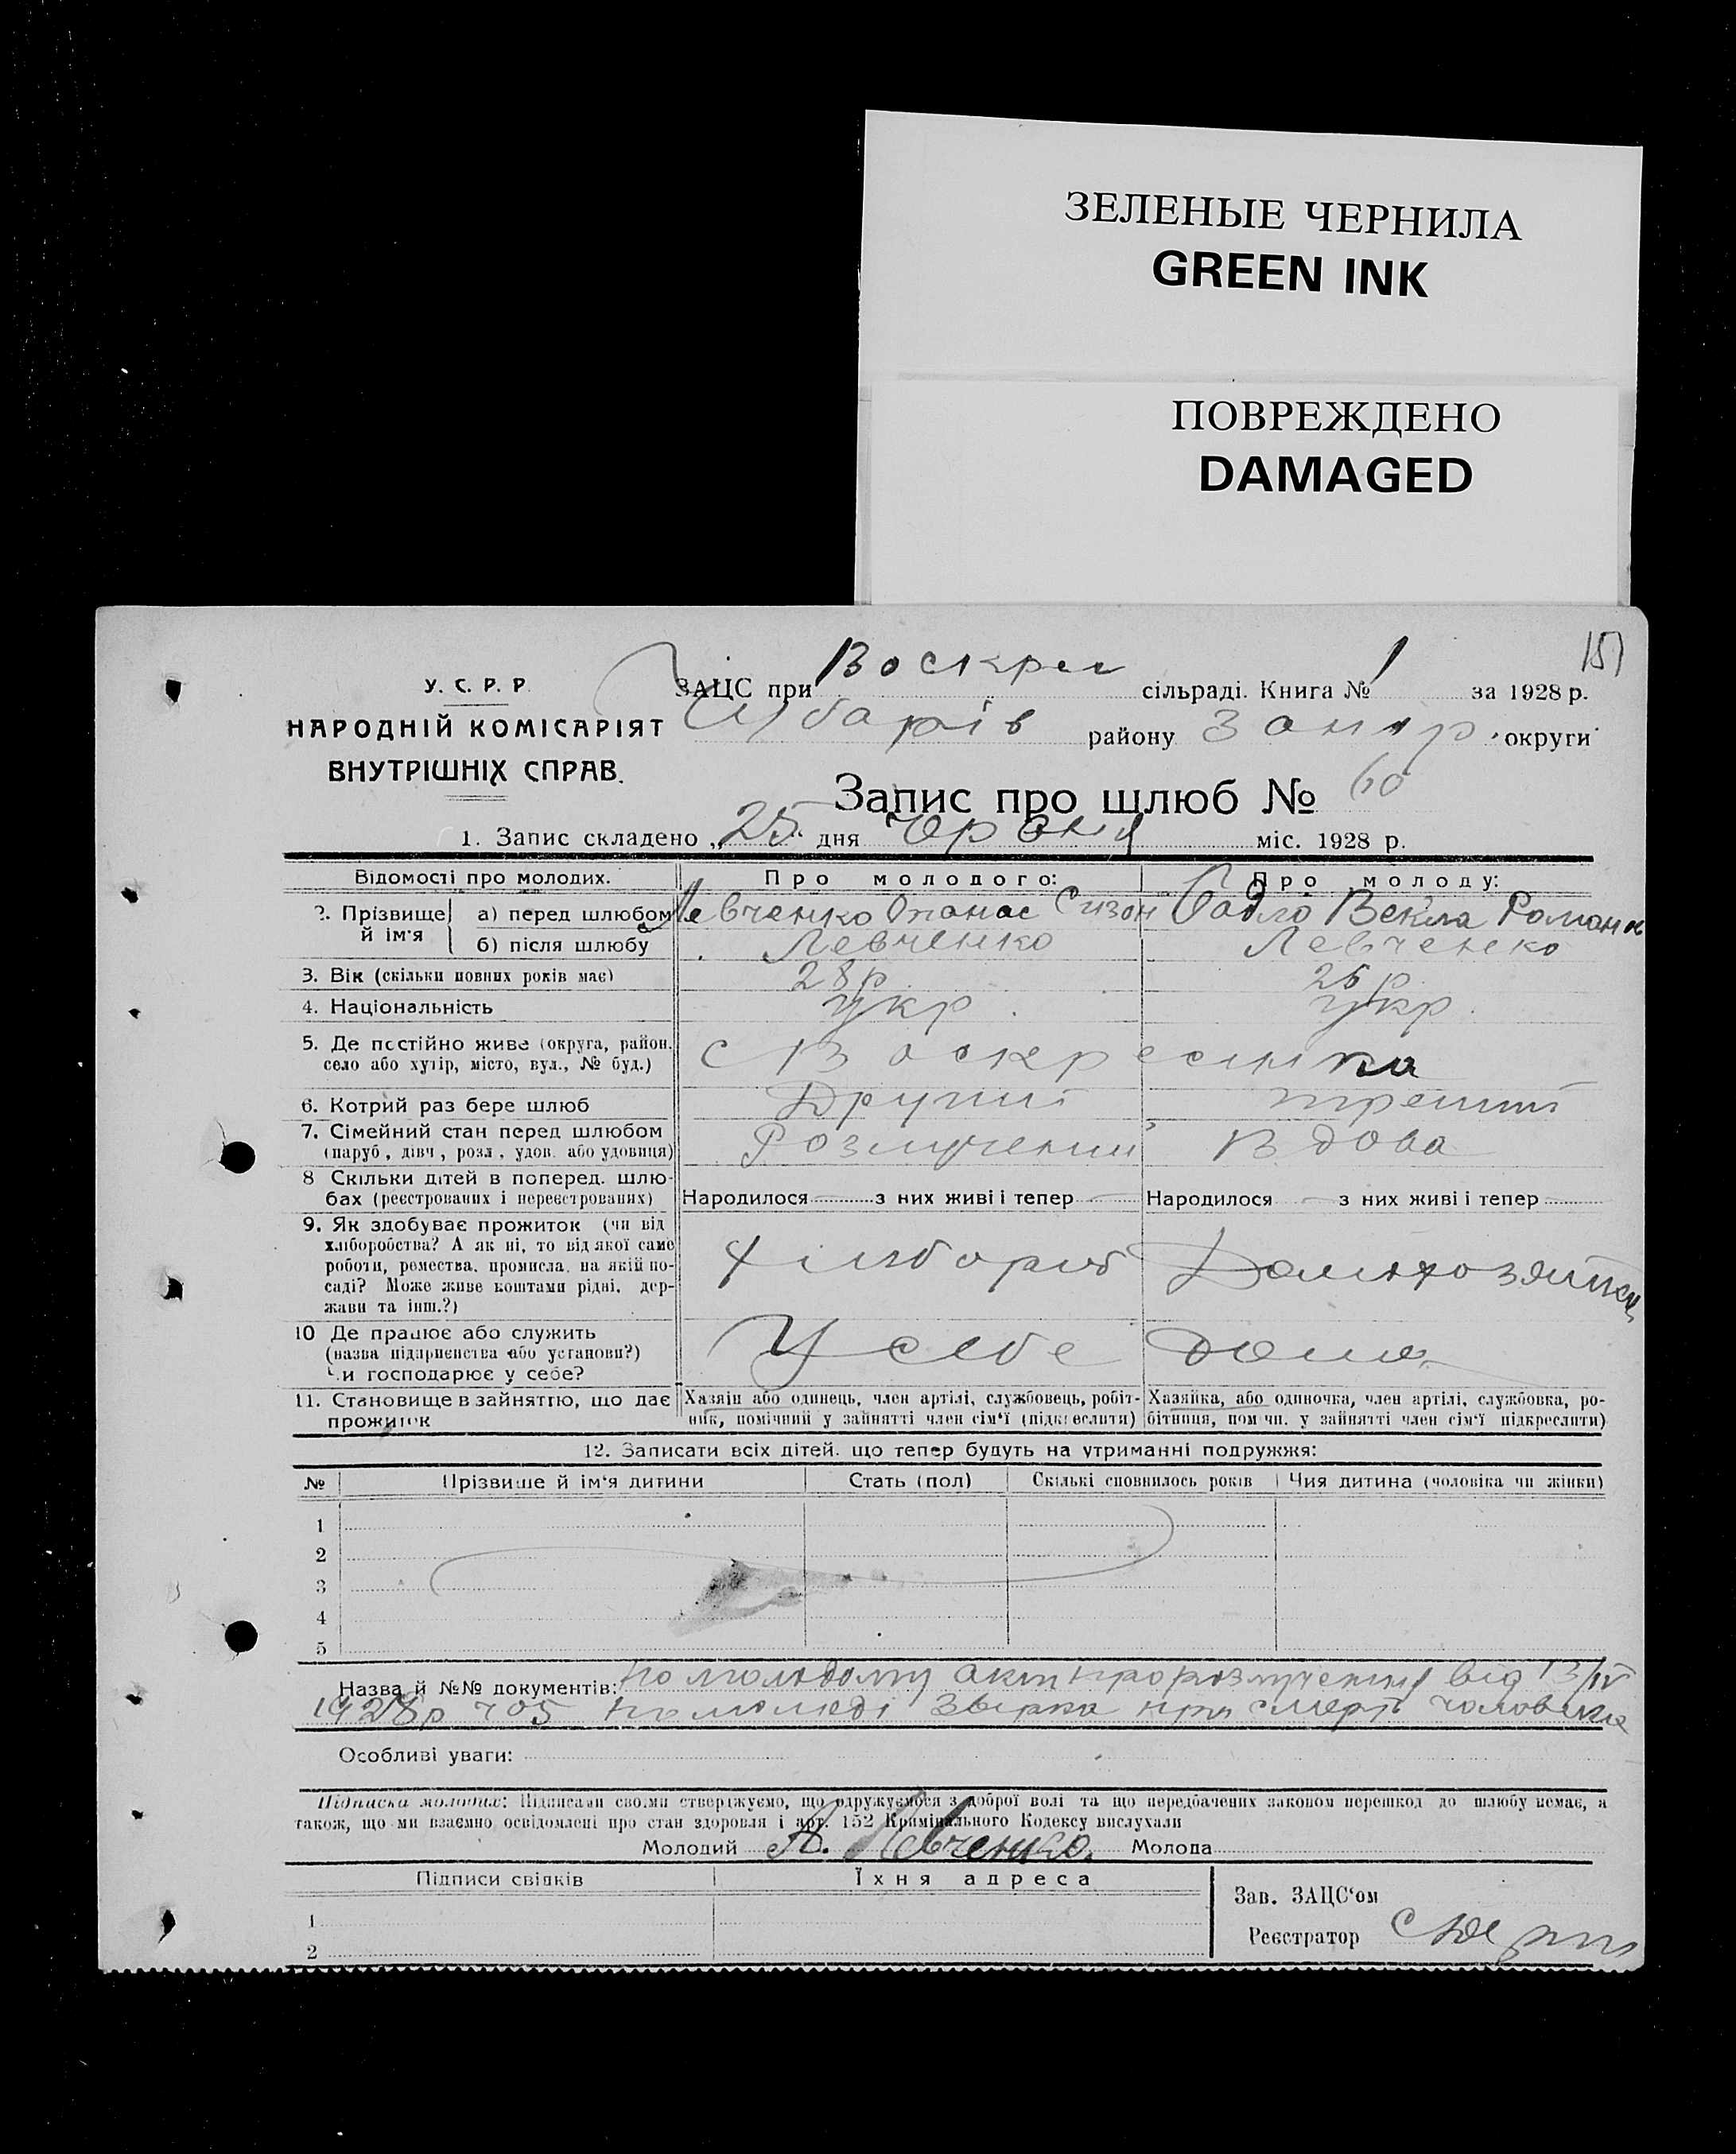 ЗЕЛЕНЫЕ ЧЕРНИЛА
GREEN INK
ПОВРЕЖДЕНО
DAMAGED
151
У. С. Р. Р.
НАРОДНІЙ КОМІСАРІЯТ
ВНУТРІШНІХ СПРАВ.
ЗАЦС при Воскрес сільраді. Книга № 1 за 1928 р.
району Запор. округи
Запис про шлюб № 60
1. Запис складено „25“ дня червня міс. 1928 р.
Відомості про молодих. Про молодого: Про молоду:
2. Прізвище й ім'я а) перед шлюбом Левченко Опанас Сизон Векла Роман
б) після шлюбу Левченко Левченко
3. Вік (скільки повних років має) 28 р 26 р
4. Національність укр. укр.
5. Де постійно живе (округа, район, село або хутір, місто, вул., № буд.) с Воскресенка
6. Котрий раз бере шлюб Другий третий
7. Сімейний стан перед шлюбом (паруб., дівч., розл., удов. або удовиця) Розлучений Вдова
8 Скільки дітей в поперед. шлюбах (реєстрованих і нереєстрованих) Народилося — з них живі і тепер — Народилося — з них живі і тепер —
9. Як здобуває прожиток (чи від
хліборобства? А як ні, то від якої само
роботи, ремества, промисла, на якій по-
саді? Може живе коштами рідні, дер-
жави та інш.?)
хлібороб Домохозяйка
10 Де працює або служить
(назва підприємства або установи?)
Чи господарює у себе?
У себе дома
11. Становище в зайняттю, що дає
прожиток
Хазяїн або одинець, член артілі, службовець, робіт-
ник, помічний у зайнятті член сім'ї (підкреслити)
Хазяйка, або одиночка, член артілі, службовка, ро-
бітниця, помічн. у зайнятті член сім'ї підкреслити)
12. Записати всіх дітей, що тепер будуть на утриманні подружжя:
№ Прізвище й ім'я дитини Стать (пол) Скількі сповнилось років Чия дитина (чоловіка чи жінки)
1
2
3
4
5
Назва й №№ документів: По молодому акт про розлучения від 13/IV
1928р ч 05 по молоді при смерті чоловика
Особливі уваги:
Підписка молодих: Підписами своїми стверджуємо, що одружуємося з доброї волі та що передбачених законом перешкод до шлюбу немає, а
також, що ми взаємно освідомлені про стан здоровля і арт. 152 Кримінального Кодексу вислухали
Молодий А. Левченко. Молода
Підписи свідків Їхня адреса
1
2
Зав. ЗАЦС'ом
Реєстратор